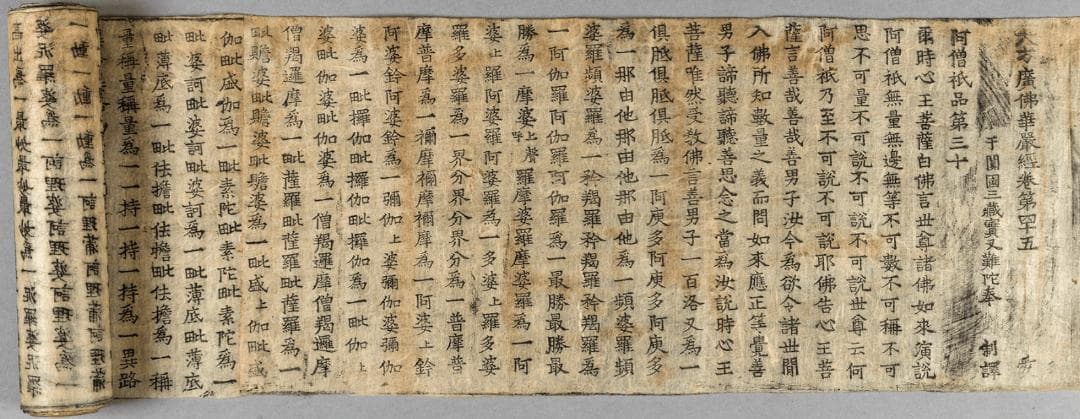 大方廣佛華嚴經卷第四十五
于闐國三藏實叉難陀奉 制譯
阿僧祇品第三十
爾時心王菩薩白佛言世尊諸佛如來演說
阿僧祇無量無邊無等不可數不可稱不可
思不可量不可說不可說不可說世尊云何
阿僧祇乃至不可說不可說耶佛告心王菩
薩言善哉善哉善男子汝今為欲令諸世間
入佛所知數量之義而問如來應正等覺善
男子諦聽諦聽善思念之當為汝說時心王
菩薩唯然受教佛言善男子一百洛叉為一
俱胝俱胝俱胝為一阿庾多阿庾多阿庾多
為一那由他那由他那由他為一頻婆羅頻
婆羅頻婆羅為一矜羯羅矜羯羅矜羯羅為
一阿伽羅阿伽羅阿伽羅為一最勝最勝最
勝為一摩婆上聲呼羅摩婆羅摩婆羅為一阿
婆上羅阿婆羅阿婆羅為一多婆上羅多婆
羅多婆羅為一界分界分界分為一普摩普
摩普摩為一禰摩禰摩禰摩為一阿婆上鈐
阿婆鈐阿婆鈐為一彌伽上婆彌伽婆彌伽
婆為一毗攞伽毗攞伽毗攞伽為一毗伽上
婆毗伽婆毗伽婆為一僧羯邏摩僧羯邏摩
僧羯邏摩為一毗薩羅毗薩羅毗薩羅為一
毗贍婆毗贍婆毗贍婆為一毗盛上伽毗盛
伽毗盛伽為一毗素陀毗素陀毗素陀為一
毗婆訶毗婆訶毗婆訶為一毗薄底毗薄底
毗薄底為一毗佉擔毗佉擔毗佉擔為一稱
量稱量稱量為一一持一持一持為一異路
一動一動一動為一訶理蒲訶理蒲訶理蒲